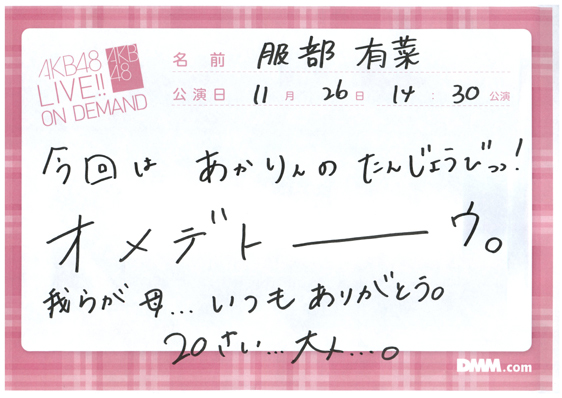 AKB48
LIVE!!
ON DEMAND
AKB
48
名前 服部 有菜
公演日 11月 26日 14:30公演
今回は あかりんの たんじょうびっ!
オメデトーウ。
我らが 母... いつも ありがとう。
20さい...大人...。
DMM.com